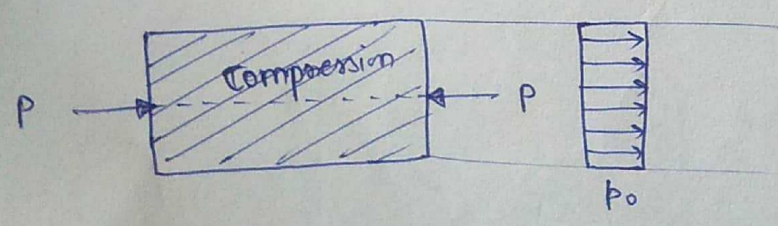 Compression
P
P
Po